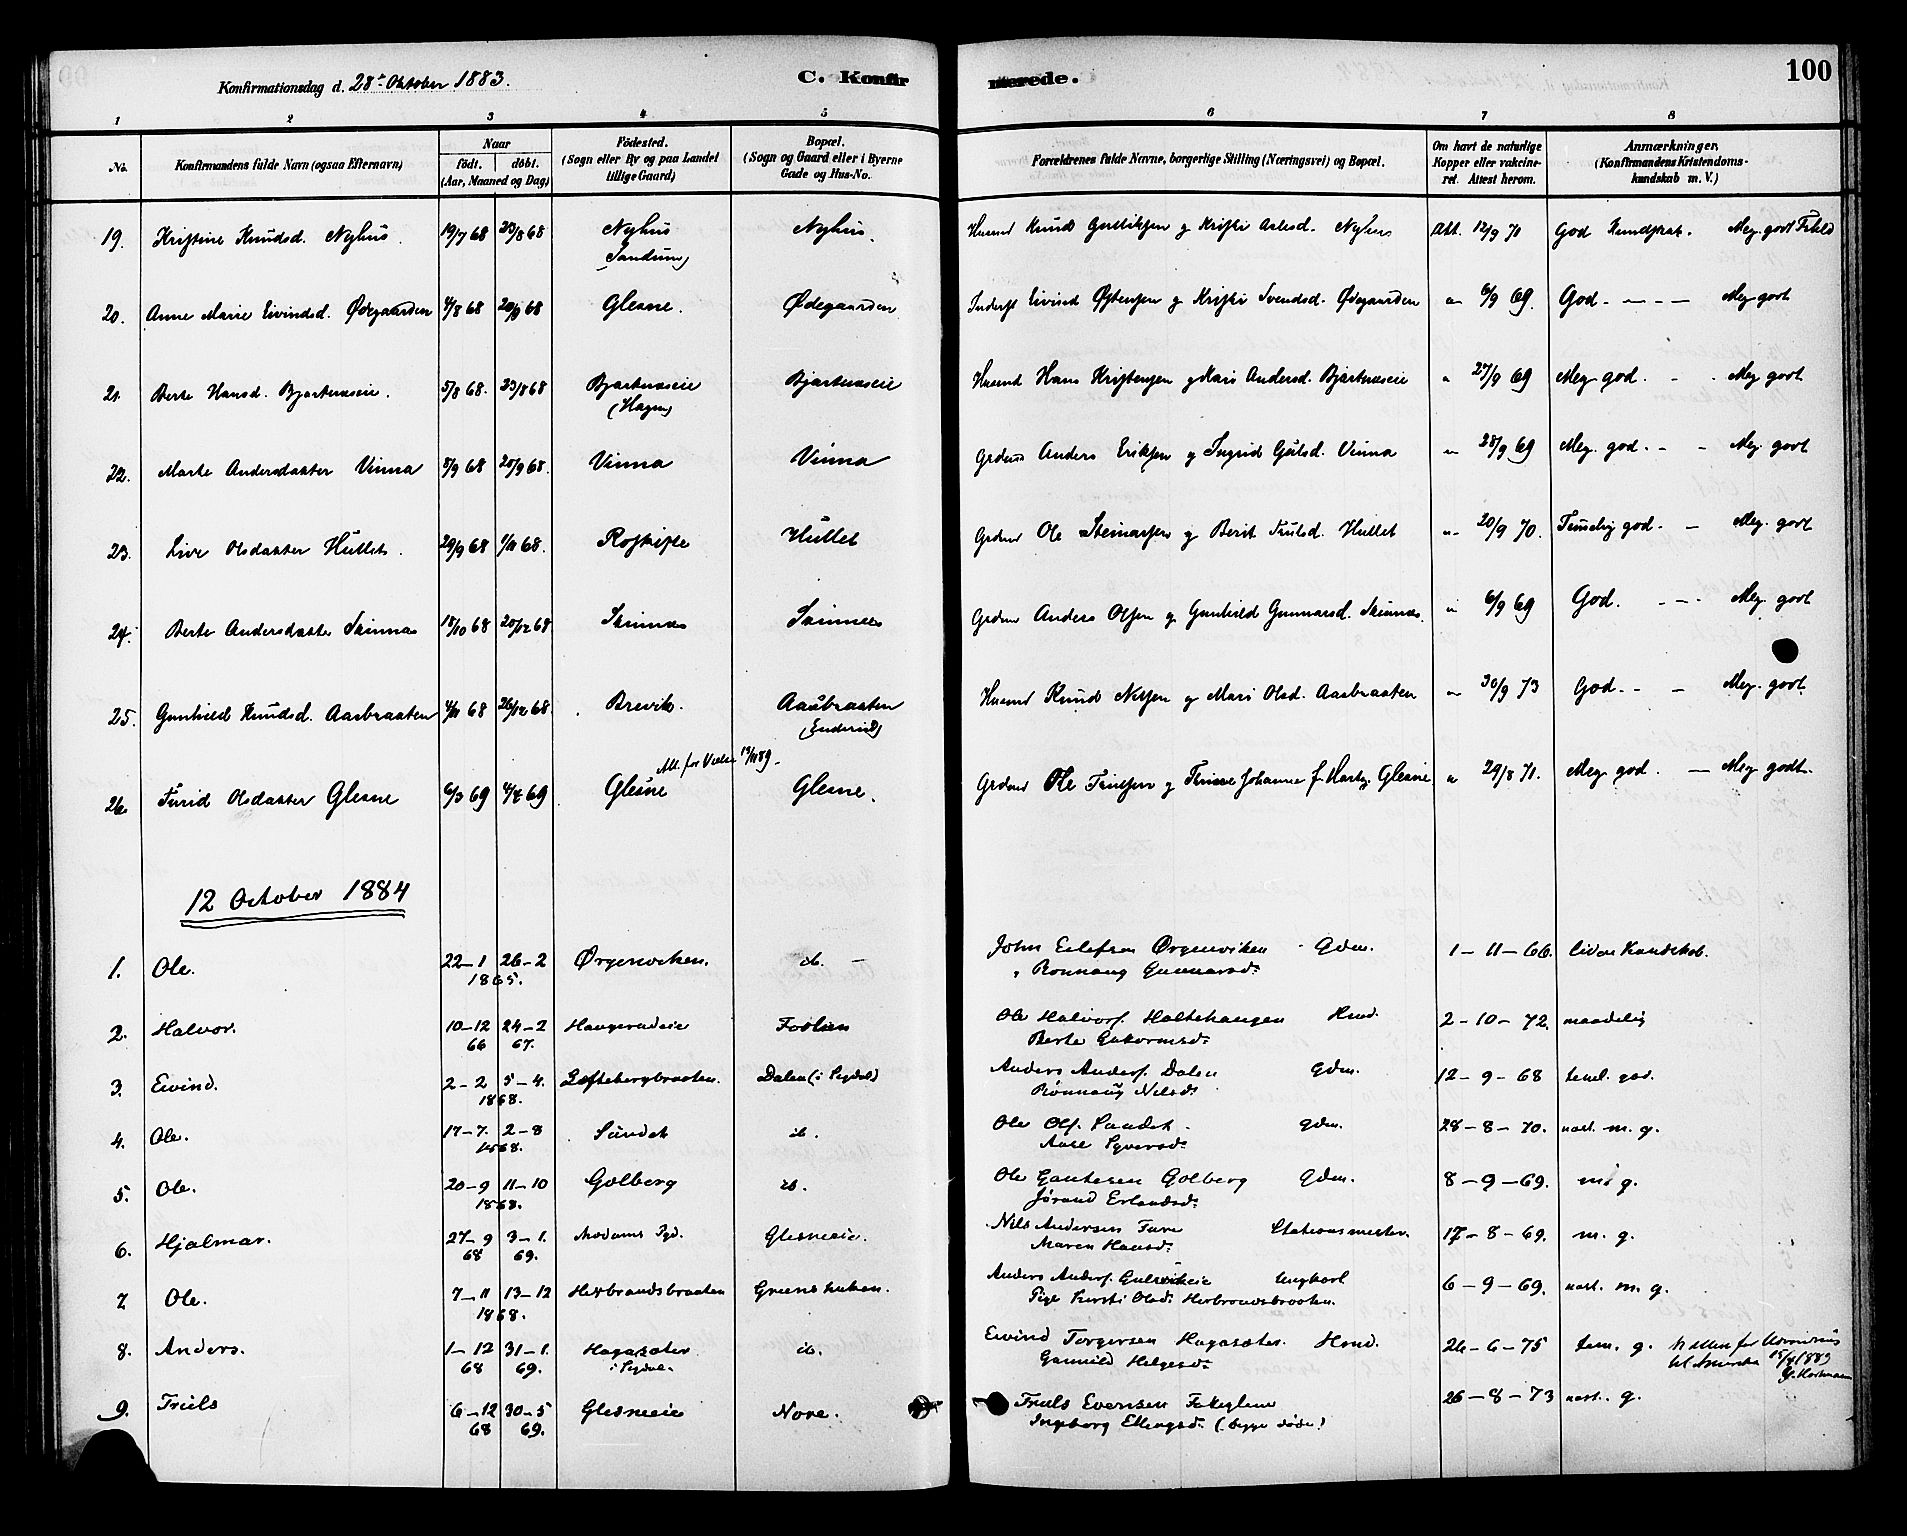 Konfirmationsdag d. 28de Oktober 1883.
C. Konfirmerede.
100
1 2 3 4 5 6 7 8
No. Konfirmandens fulde Navn (ogsaa Efternavn) Naar födt. döbt. (Aar, Maaned og Dag) Födested. (Sogn eller By og paa Landet tillige Gaard) Bopæl. (Sogn og Gaard eller i Byerne Gade og Hus-No. Forældrenes fulde Navne, borgerlige Stilling (Næringsvei) og Bopæl. Om havt de naturlige Kopper eller vakcineret. Attest herom. Anmærkninger. (Konfirmandens Kristendomskundskab m. V.)
19. Kristine Knudsd. Nyhus. 19/7 68 23/8 68 Nyhus Nyhus. Husmd Knud Gulliksen og Kristi Aslesd. Nyhus Att. 12/9 71 God Kundskab. Meg. godt Forhold
20. Anne Marie Eivindsd. Ødegaarden 4/8 68 20/9 68 Glesne. Ødegaarden Inderst Eivind Østensen og Kristi Svendsd. Ødegaarden 6/9 69. God Meg godt
21. Berte Hansd. Bjertnæseie. 5/8 68. 23/8 68 Bjertnæseie (Hagen) Bjertnæseie Husmd Hans Kristensen og Kari Andersd. Bjertnæseie 27/9 69 Meg. god. Meg godt
22. Marte Andersdatter Vinna 8/9 68 20/9 68. Vinna Vinna Grdmd Anders Eriksen og Ingrid Gulsd. Vinna 28/9 69 Meg. god. Meg. godt
23. Live Olsdatter Hullet. 29/9 68 1/11 68. Roskifte Hullet Grdmd Ole Steinarsen og Berit Trulsd. Hullet 20/9 70. Temelig god. Meg. godt
24. Berte Andersdatter Skinnæs 18/10 68 20/12 68 Skinnæs Skinnæs Grdmd Anders Olsen og Gunhild Gunnarsd. Skinnæs. 6/9 69 God. Meg. godt
25. Gunhild Knudsd. Aasbraaten 4/11 68 26/12 68. Brevik. Aasbraaten Husmd Knud Nilsen og Mari Olsd. Aasbraaten 30/9 73 God. Meg. godt
Att. for Vielse 13/11 89.
26 Turid Olsdatter Glesne 6/3 69 4/4 69 Glesne Glesne. Grdmd Ole Trulsen og Trine Johanne f. Hartz, Glesne 29/8 71. Meg. god. Meg godt.
12 October 1884
1. Ole. 22-1 26-2 1865. Ørgenviken. ib. John Eilefsen Ørgenviken Gdm. 1-11-66. liden Kundskab.
Rönnaug Gunnarsd.
2. Halvor. 10-12 66 24-2 67. Haugerudeie Foslien Ole Halvors. Holtehaugen Hmd. 2-10-72. maadelig
Berte Guttormsd.
3. Eivind. 2-2 5-4. 1868. Loftebergbraaten. Dalen (i Sigdal) Anders Anders. Dalen Gdm. 12-9-68 temel. god.
Rönnaug Nilsd.
4. Ole. 17-7. 2-8 1868. Sundet ib. Ole Ols. Sundet Gdm. 28-8-70. næst. m. g.
Aase Syversd.
5. Ole. 20-9 11-10 1868. Golberg ib. Ole Gautesen Golberg Gdm. 8-9-69. m. g.
Jörand Erlandsd.
6. Hjalmar. 27-9 68 3-1. 69. Modums Pgd. Glesneeie. Nils Andersen Fure Stationsmester. 17-8-69. m. g.
Maren Hansd.
7 Ole. 7-11 13-12 1868. Herbrandsbraaten Grænskuken. Anders Anders. Gulsvikeie Ungkarl 6-9-69. næst. m. g.
Pige Kersti Olsd. Herbrandsbraaten.
8. Anders. 1-12 68 31-1. 69. Hagasæter i Sigdal ib. Eivind Torgersen Hagasæter. Hmd. 26-6-75 tem. g. til Amerika 15/4 1889
Gunnild Helgesd.
9. Truls 6-12 68 30-5 69. Glesneeie Nore. Truls Evensen 26-8-73 næst. g.
Ingeborg Ellingsd. (begge döde)